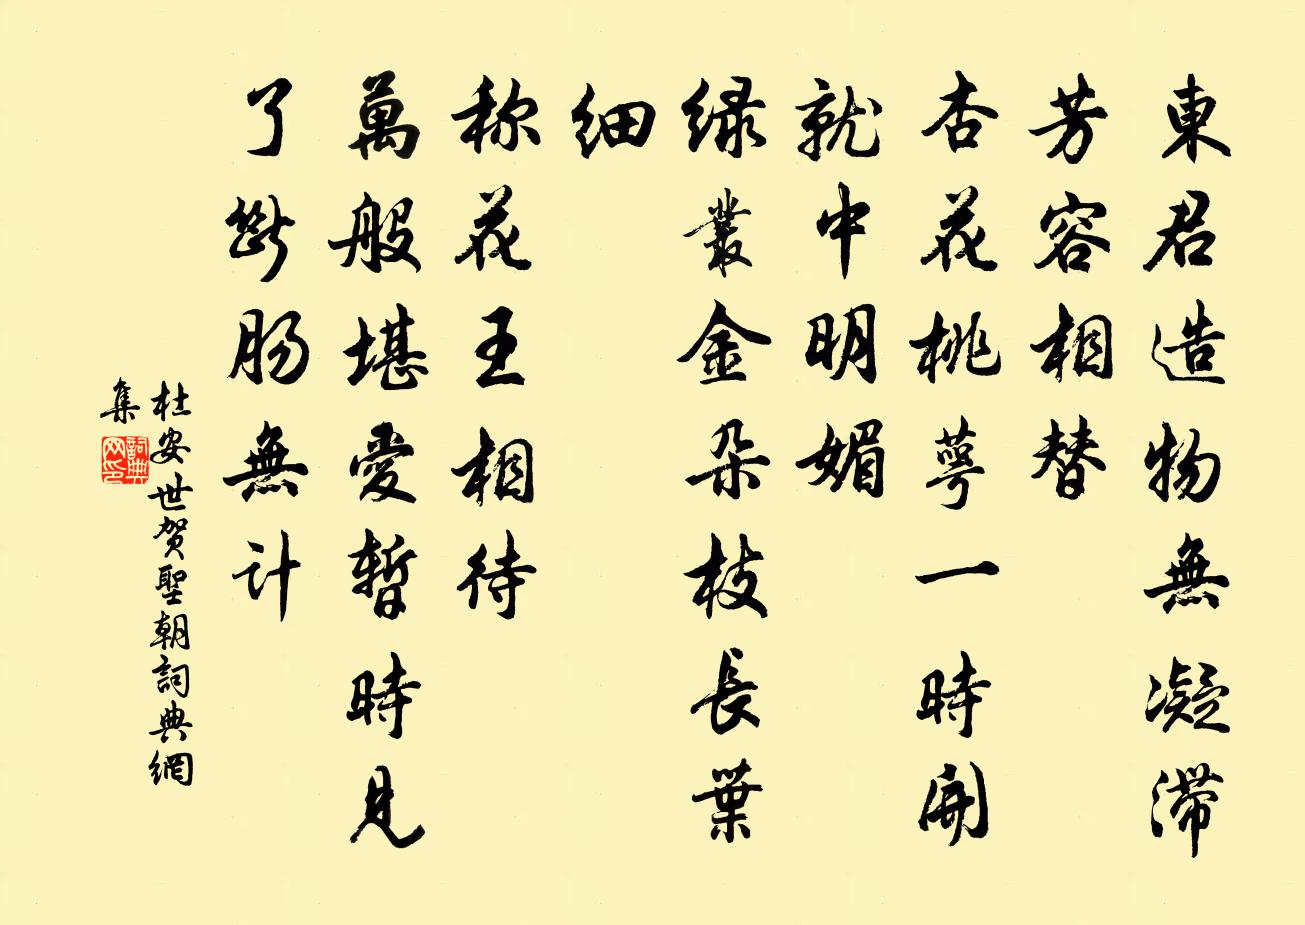 東君造物無凝滯
芳容相替
杏花桃萼一時開
就中明媚
绿叢金朵枝長葉
细
称花王相待
萬般堪愛暫時見
了斷肠無计
杜安世贺聖朝詞典網
集
詞典
网印